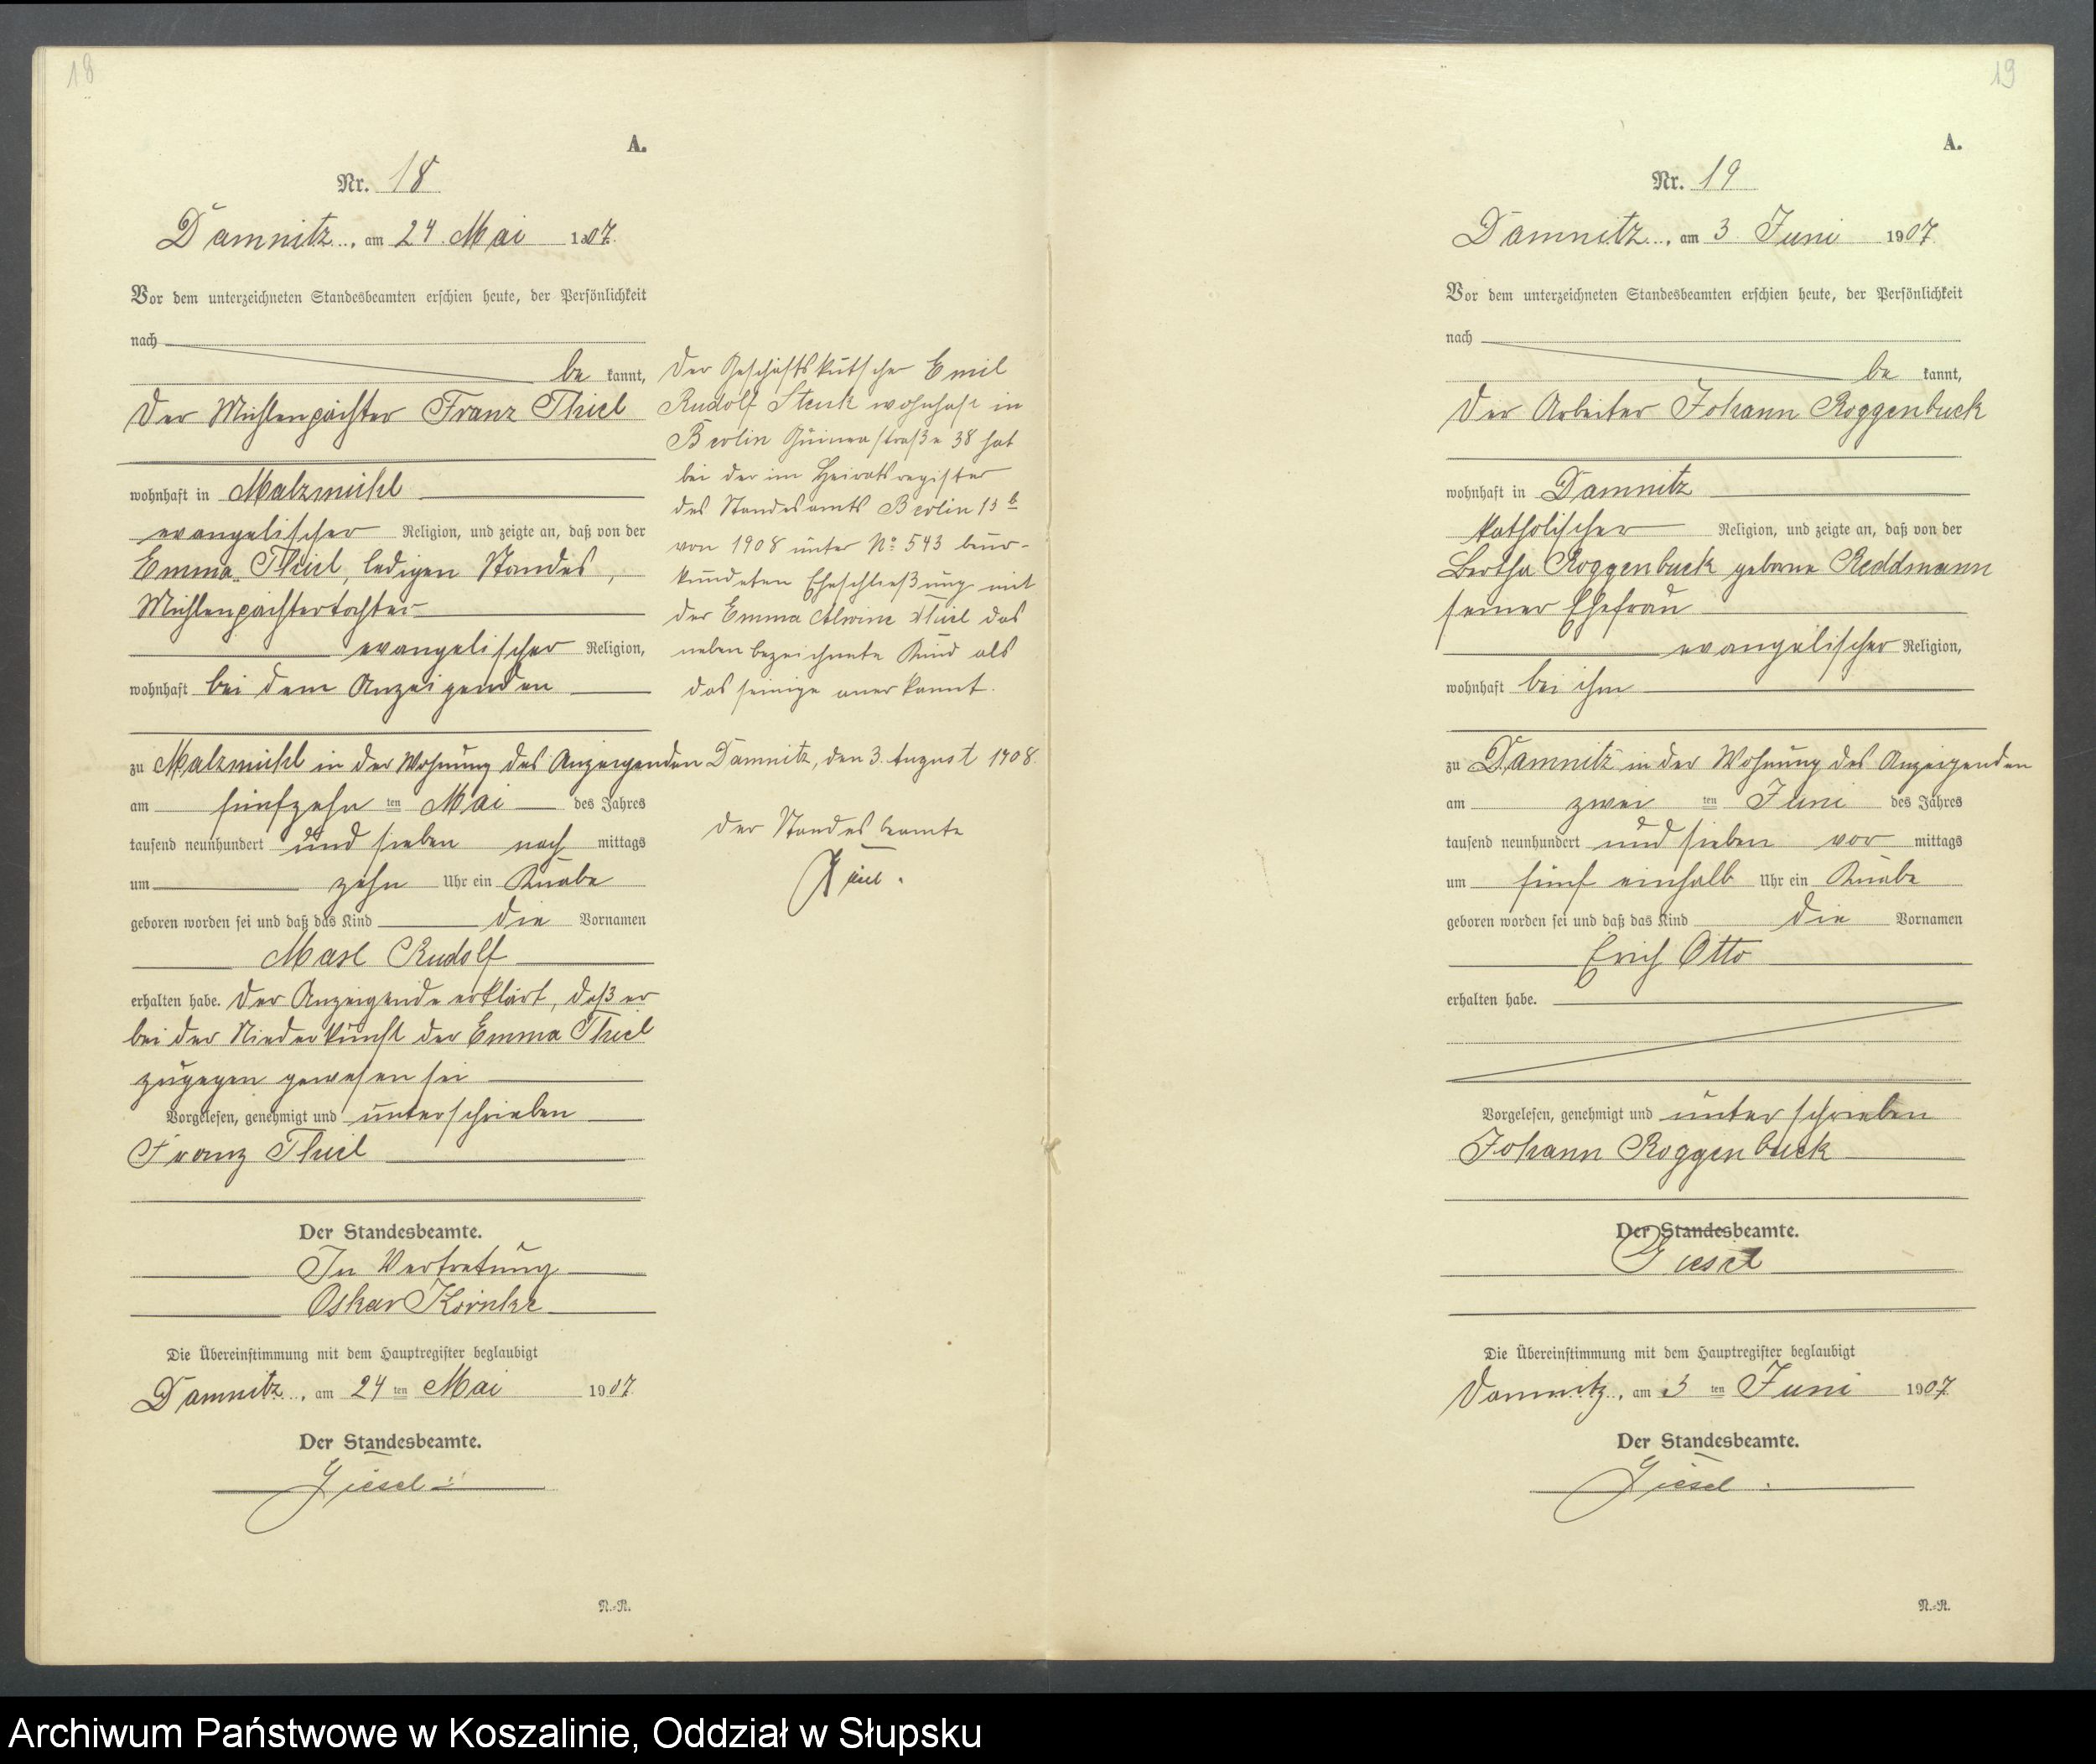 18
A.
Nr. 18
Damnitz, am 24 Mai 1907.
Vor dem unterzeichneten Standesbeamten erschien heute, der Persönlichkeit
nach
be kannt,
der Mühlenpächter Franz Thiel
wohnhaft in Malzmühl
evangelischer Religion, und zeigte an, daß von der
Emma Thiel, ledigen Standes,
Mühlenpächtertochter
evangelischer Religion,
wohnhaft bei dem Anzeigenden
zu Malzmühl in der Wohnung des Anzeigenden
am fünfzehn ten Mai des Jahres
tausend neunhundert und sieben nach mittags
um zehn Uhr ein Knabe
geboren worden sei und daß das Kind die Vornamen
Max Rudolf
erhalten habe. Der Anzeigende erklärt, daß er
bei der Niederkunft der Emma Thiel
zugegen gewesen sei
Vorgelesen, genehmigt und unterschrieben
Franz Thiel
Der Standesbeamte.
In Vertretung
Oskar
Die Übereinstimmung mit dem Hauptregister beglaubigt
Damnitz, am 24 ten Mai 1907.
Der Standesbeamte.
Giesel
N.-R.
Der Geschäftskutscher Emil
Rudolf wohnhaft in
Berlin straße 38 hat
bei der im Heiratsregister
des Standesamts Berlin 13 b
von 1908 unter No 543 beur-
kundeten Eheschließung mit
der Emma Alwine Thiel das
neben bezeichnete Kind als
das seinige anerkannt.
Damnitz, den 3. August 1908.
Der Standesbeamte
19
A.
Nr. 19
Damnitz, am 3 Juni 1907.
Vor dem unterzeichneten Standesbeamten erschien heute, der Persönlichkeit
nach
be kannt,
der Arbeiter Johann Roggenbuck
wohnhaft in Damnitz
katholischer Religion, und zeigte an, daß von der
Bertha Roggenbuck geborne Reddmann
seiner Ehefrau
evangelischer Religion,
wohnhaft bei ihm
zu Damnitz in der Wohnung des Anzeigenden
am zwei ten Juni des Jahres
tausend neunhundert und sieben vor mittags
um fünf einhalb Uhr ein Knabe
geboren worden sei und daß das Kind die Vornamen
Erich Otto
erhalten habe.
Vorgelesen, genehmigt und unterschrieben
Johann Roggenbuck
Der Standesbeamte.
Giesel
Die Übereinstimmung mit dem Hauptregister beglaubigt
Damnitz, am 3 ten Juni 1907.
Der Standesbeamte.
Giesel.
N.-R.
Archiwum Państwowe w Koszalinie, Oddział w Słupsku